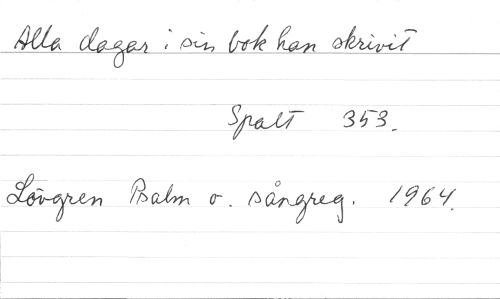 Alla dagar i sin bok han skrivit
Spalt 353.
Lövgren Psalm o. sångreg. 1964.